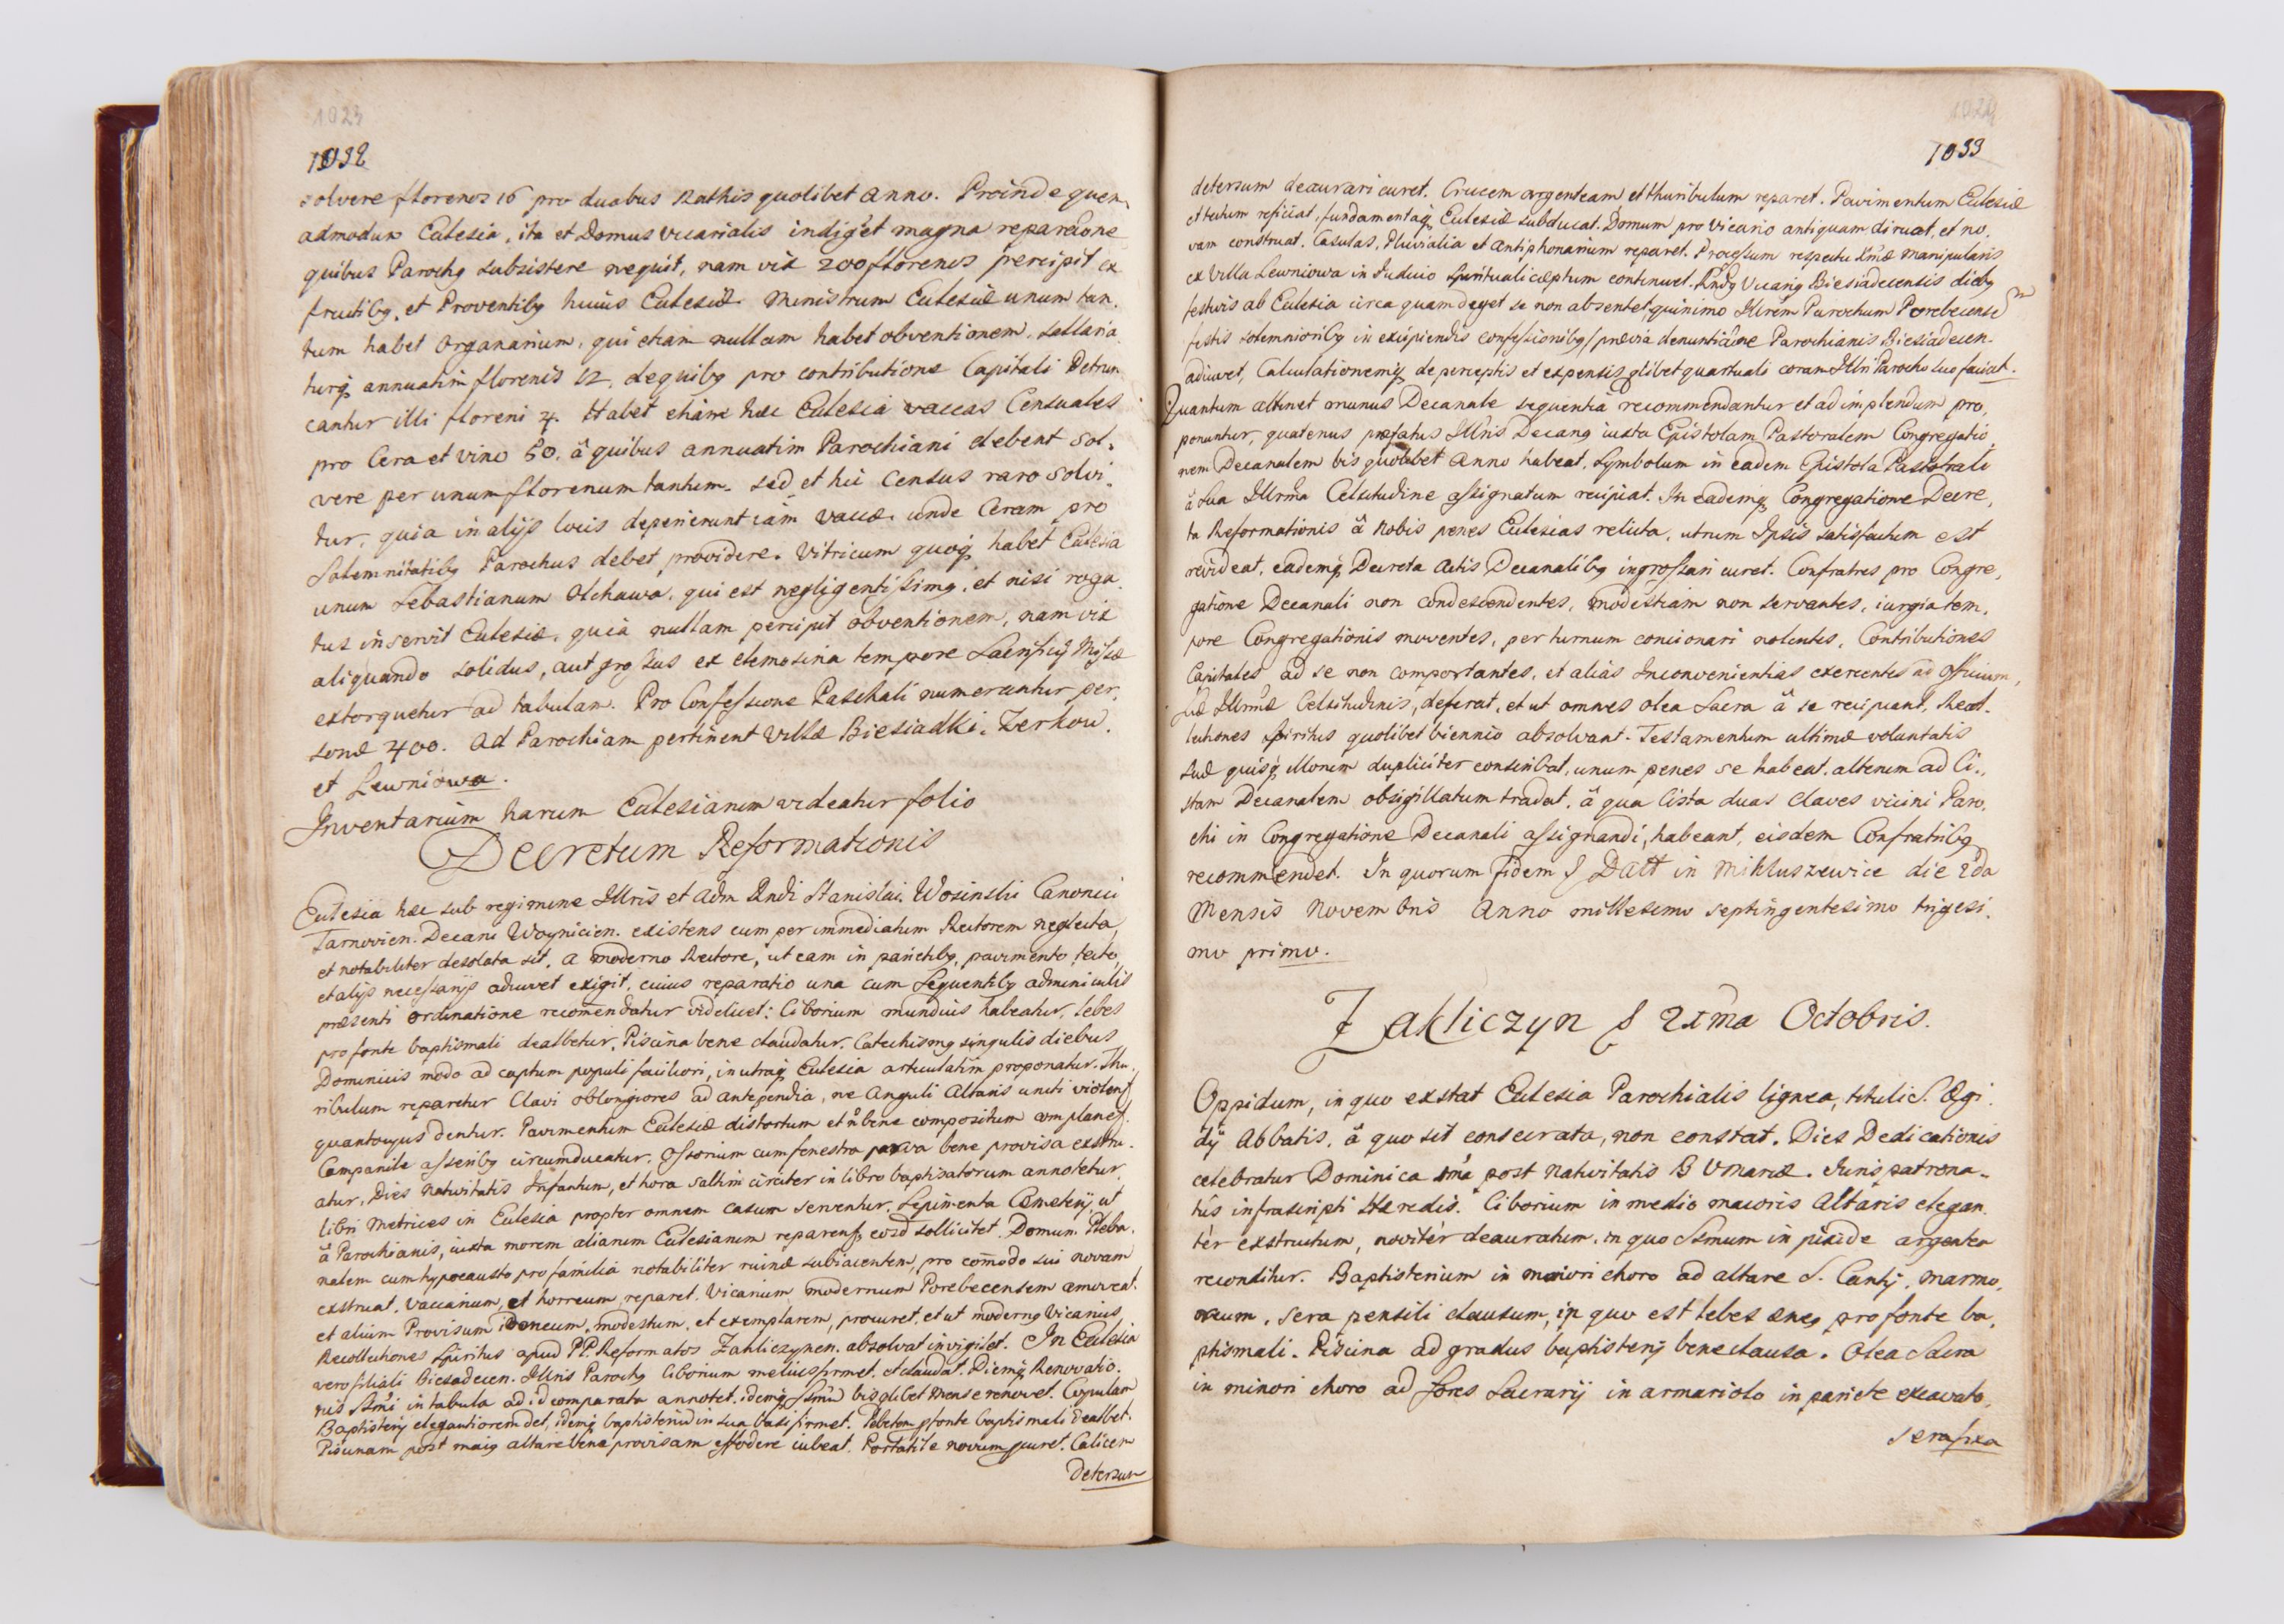 1023
1032
solvere florenos 16 pro duabus Rathis quolibet anno. Proinde quem,
admodum Eclesia, ita et Domus vicarialis indiget magna reparãone
quibus Parochq subsistere nequit, nam vix 200 florenos percipit ex
fructibq, et Proventibq huius Eclesiæ. Ministrum Eclesiæ unum tan,
tum habet Organarium, qui etiam nullam habet obventionem, sallaria,
turq annuatim florenis 12. de quibq pro contributione Capitali Detrun
cantur illi floreni 4. Habet etiam hæc Eclesia vaccas Censuales
pro Cera et vino 50. â quibus annuatim Parochiani debent sol,
vere per unum florenum tantum. sed et hic Census raro solvi,
tur, quia in alijs locis deperierunt iam vaccæ. unde Ceram pro
Solemnitatibq Parochus debet providere. Vitricum quoq habet Eclesia
unum Sebastianum Olchawa, qui est negligentissimq, et nisi roga,
tus inservit Eclesiæ, quia nullam percipit obventionem, nam vix
aliquando solidus, aut grossus ex elemosina tempore Sacrificij Missæ
extorquetur ad tabulam. Pro Confessione Paschali numerantur per,
sonæ 400. Ad Parochiam pertinent Villæ Biesiadki, Zerkow.
et Lewniowa.
Inventarium harum Eclesiarum videatur folio
Decretum Reformationis
Eclesia hæc sub regimine Illris et Adm Rndi Stanislai Wosinski Canonici
Tarnovien. Decani Woynicien. existens cum per immediatum Rectorem neglecta,
et notabiliter desolata sit, a moderno Rectore, ut eam in parietibq, pavimento, tecto,
et alijs necessarijs adiuvet exigit, cuius reparatio una cum sequentibq adminiculis
præsenti ordinatione recom̃endatur videlicet: Ciborium mundius habeatur, lebes
pro fonte baptismali dealbetur, Piscina bene claudatur. Catechismq singulis diebus
Dominicis modo ad captum populi faciliori, in utraq Eclesia articulatim proponatur. Thu,
ribulum reparetur Clavi oblongiores ad antependia, ne Anguli Altaris uniti
quantocyus dentur. Pavimentum Eclesiæ distortum et n̂ bene compositum
Campanile asseribq circumducatur. Ossorium cum fenestra parva bene provisa exstru,
atur, Dies nativitatis Infantum, et hora saltim circiter in libro baptisatorum annotetur,
libri Metrices in Eclesia propter omnem casum serventur. Sepimenta Cæmeterij ut
â Parochianis, iuxta morem aliarum Eclesiarum sollicitet. Domum Pleba,
nalem cum hypocausto pro familia notabiliter ruinæ subiacentem, pro com̃odo sui novam
exstruat, vaccarium, et horreum, reparet. Vicarium modernum Porebecensem amoveat.
et alium Provisum idoneum, modestum, et exemplarem, procuret, et ut modernq Vicarius,
Recollectiones spiritus apud PP Reformatos Zakliczynen. absolvat invigilet. In Eclesia
vero filiali Biesiadecen. Illris Parochq Ciborium melius firmet, et claudat. Diemq Renovatio,
nis Ssmi in tabula ad id comparata annotet, idemq Ssmũ bis qlibet Mense renovet. Cupulam
Baptisterij elegantiorem det, idemq baptisteriũ in sua basi firmet. Lebetem p fonte baptismali dealbet.
Piscinam post maiq altare bene provisam effodere iubeat. Portatile novum pcuret. Calicem
Detersum
1024
1033
detersum deaurari curet. Crucem argenteam et thuribulum reparet. Pavimentum Eclesiæ
et tectum reficiat, fundamentaq Eclesiæ subducat. Domum pro Vicario antiquam diruat, et no,
vam construat. Casulas, Pluvialia et Antiphonarium reparet. Processum respectu manipularis
ex Villa Lewniowa in Iudicio Spirituali cæptum continuet. Rndq Vicariq Biesiadecensis diebq
festivis ab Eclesia circa quam deget se non absentet quinimo Illrem Parochum Porebecense
festis solemnioribq in excipiendis confessionibq/prævia denuntiãone Parochianis Biesiadecen.
adiuvet, Calculationemq de perceptis et expensis qlibet quartuali coram Illri Parocho suo faciat.
Quantum attinet munus Decanale sequentia recommendantur et ad implendum pro,
ponuntur, quatenus præfatus Illris Decanq iuxta Epistolam Pastoralem Congregatio,
nem Decanalem bis quolibet Anno habeat, Symbolum in eadem Epistola Pastorali
â Sua Illrma Celsitudine assignatum recipiat. In eademq Congregatione Decre,
ta Reformationis â Nobis penes Eclesias relicta, utrum Ipsis satisfactum est
revideat, eademq Decreta Actis Decanalibq ingrossari curet. Confratres pro Congre,
gatione Decanali non condescendentes, modestiam non servantes, iurgia tem,
pore Congregationis moventes, per turnum concionari nolentes, Contributiones
Capitales ad se non comportantes, et alias Inconvenientias exercentes ad Officium,
suæ Illrmæ Celsitudinis, deferat, et ut omnes olea Sacra â se recipiant, Recol,
lectiones spiritus quolibet biennio absolvant. Testamentum ultimæ voluntatis
suæ quisq illorum dupliciter conscribat, unum penes se habeat, alterum ad Ci,
stam Decanalem obsigillatum tradat, â qua Cista duas claves vicini Paro,
chi in Congregatione Decanali assignandi, habeant, eisdem Confratribq
recommendet. In quorum fidem Datt in Mikluszewice die 2da
Mensis Novembris Anno millesimo septingentesimo trigesi,
mo primo.
Zakliczyn 21ma Octobris.
Oppidum, in quo exstat Eclesia Parochialis lignea, tituli S. Ægi,
dij Abbatis, â quo sit consecrata, non constat. Dies Dedicationis
celebratur Dominica 1ma post Nativitatis B V Mariæ. Iuris patrona,
tûs infrascripti Hæredis. Ciborium in medio maioris Altaris elegan,
ter exstructum, noviter deauratum, in quo Ssmum in pixide argentea
reconditur. Baptisterium in maiori choro ad altare S. Cantij, marmo,
reum, sera pensili clausum, in quo est lebes æneq pro fonte ba,
ptismali. Piscina ad gradus baptisterij bene clausa. Olea Sacra
in minori choro ad fores Sacrarij in armariolo in pariete excavato,
serafixa